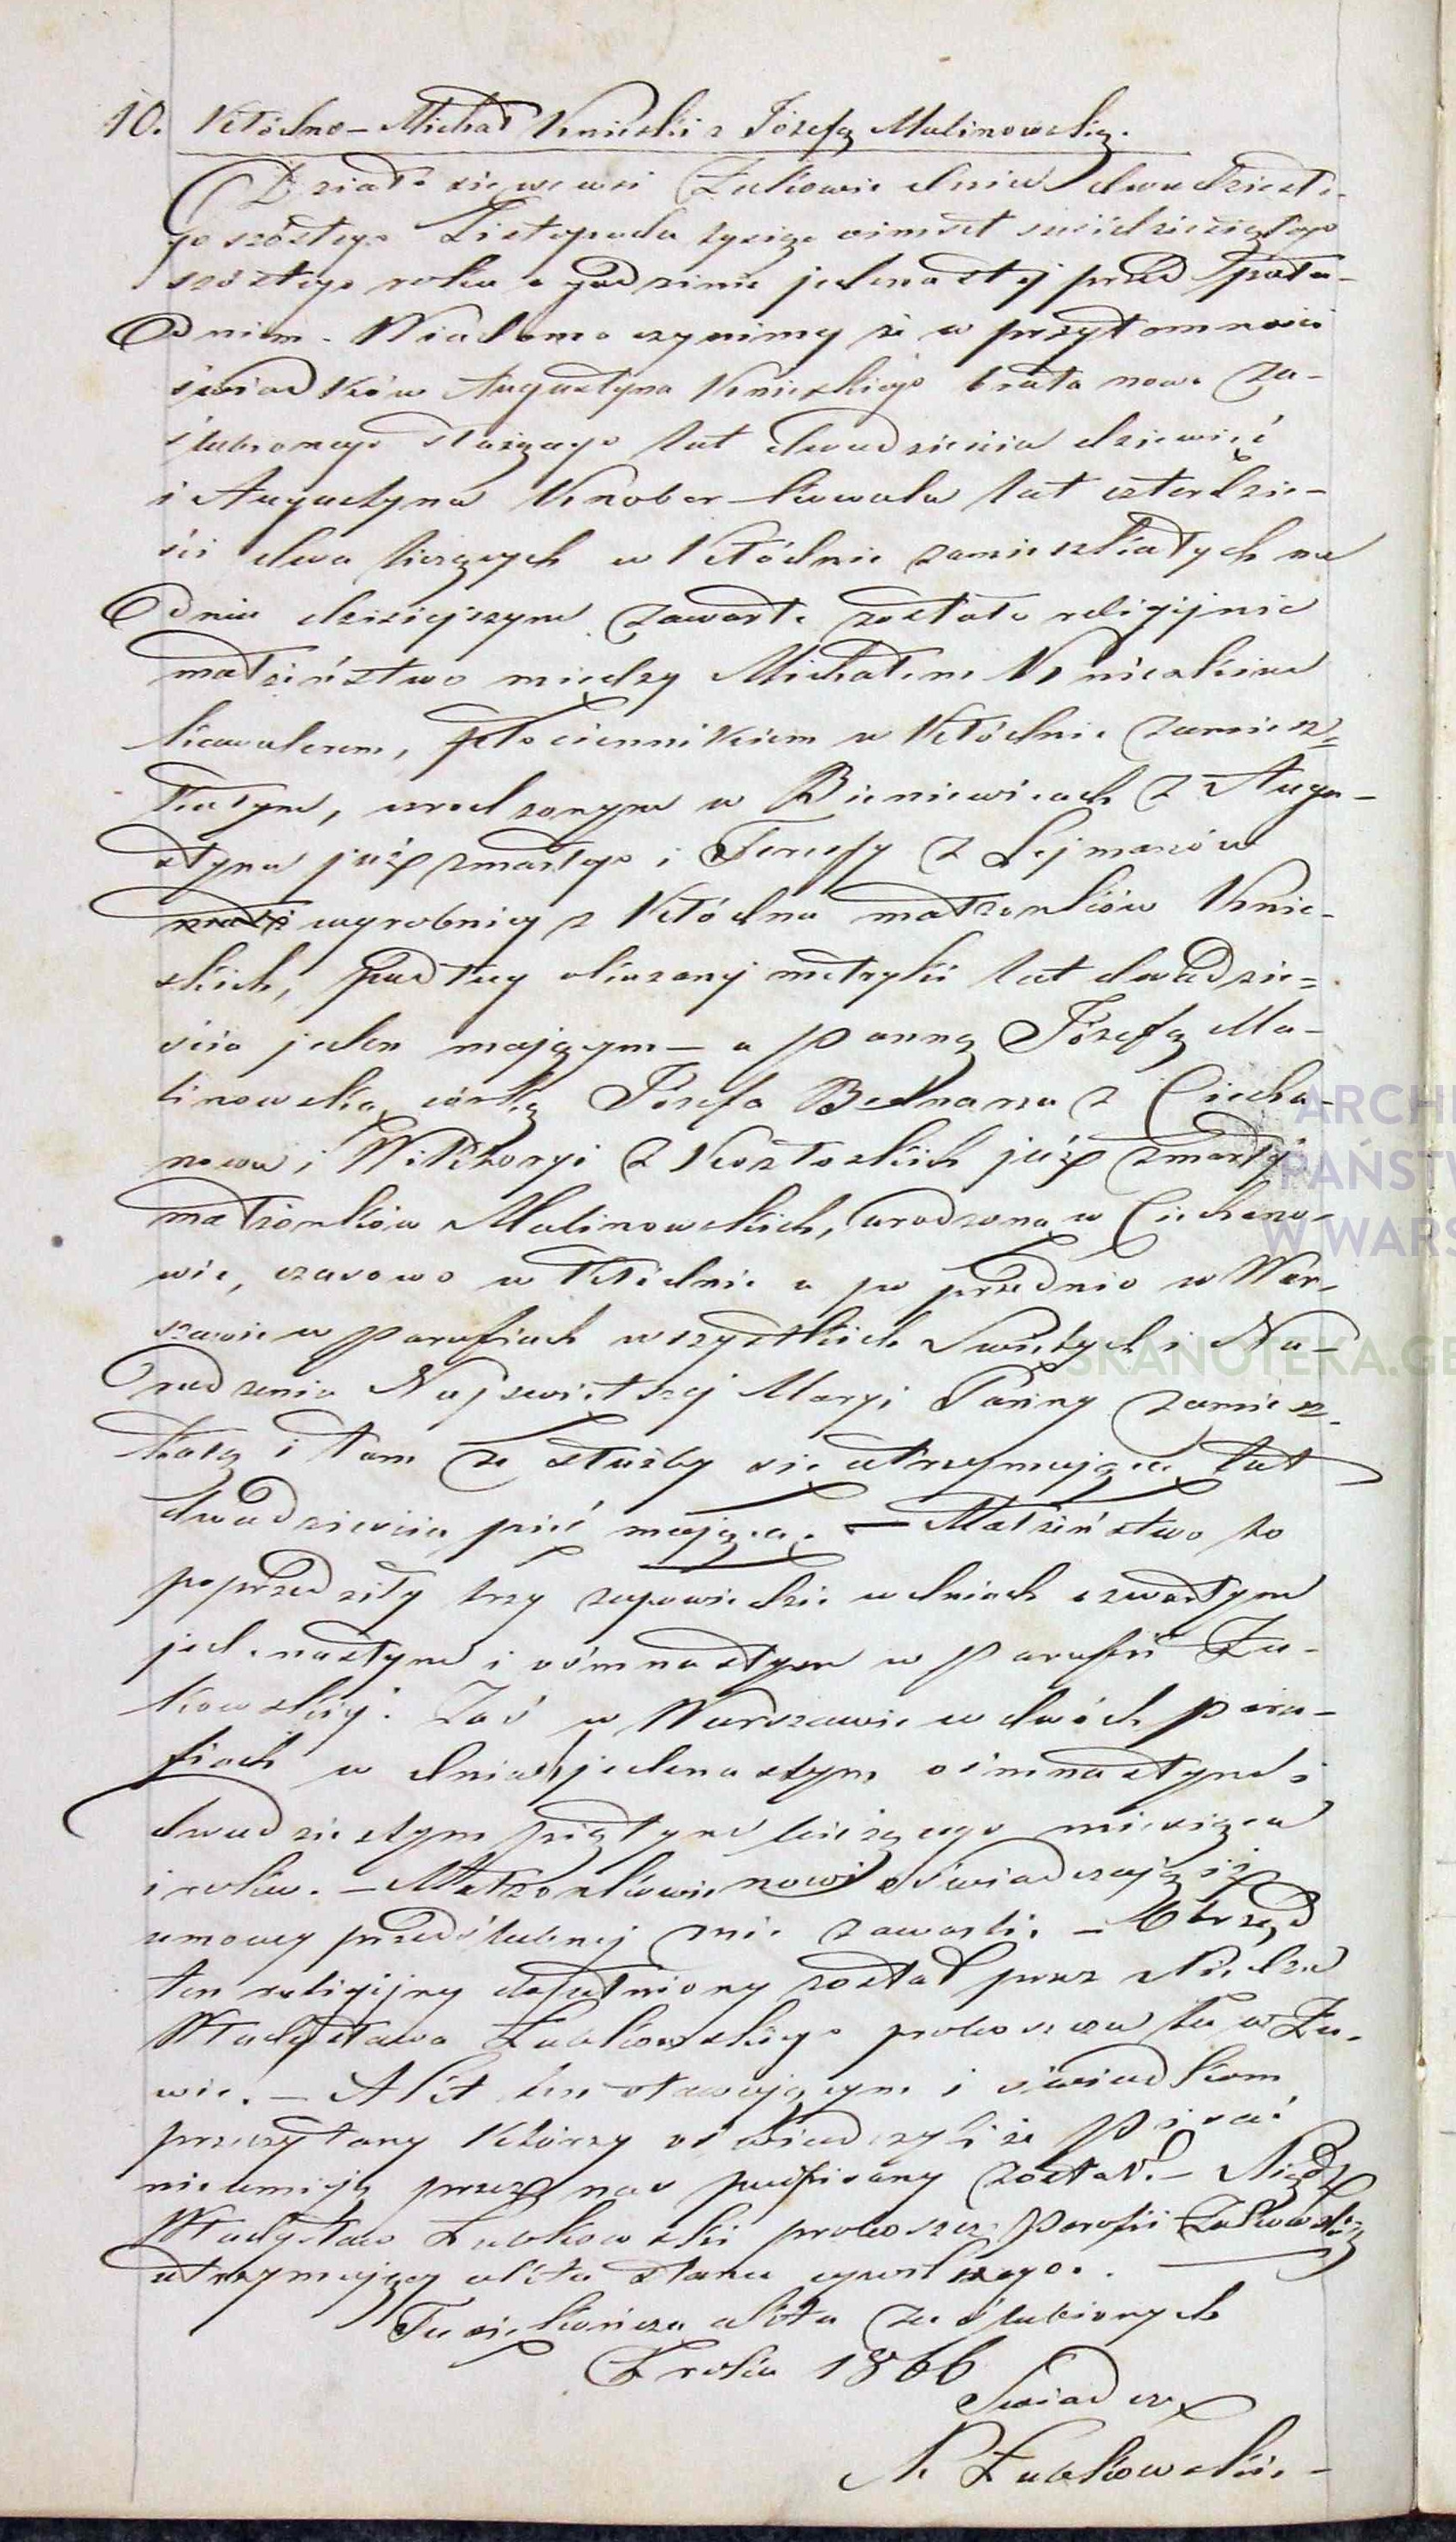 10. Kłódno – Michał Knieski z Józefą Malinowską.
Działo się we wsi Żukowie dnia dwudzieste-
go szóstego Listopada tysiąc ośmset sześćdziesiątego
szóstego roku o godzinie jedenastej przed połu-
dniem. Wiadomo czynimy że w przytomności
świadków Augustyna Knieskiego brata nowo za-
ślubionego służącego lat dwadzieścia dziewięć
i Augustyna Knober kowala lat czterdzie-
ści dwa liczących w Kłódnie zamieszkałych na
dniu dzisiejszym zawarte zostało religijnie
małżeństwo między Michałem Knieskim
kawalerem, płóciennikiem w Kłódnie zamiesz-
kałym, urodzonym w Bieniewicach z Augu-
styna już zmarłego i Teresy z Lejmanów
wyrobnicy z Kłódna małżonków Knie-
skich, podług okazanej metryki lat dwadzie-
ścia jeden mającym – a Panną Józefą Ma-
linowską córką Józefa Bednarza z Ciecha-
nowa i Wiktoryi z już zmarłej
małżonków Malinowskich, urodzoną w Ciechano-
wie, czasowo w Kłódnie a po przednio w War-
szawie w Parafiach wszystkich Swiętych i Na-
rodzenia Najswiętszej Maryi Panny zamiesz-
kałą i tam ze służby się utrzymującą lat
dwadzieścia pięć mającą. — Małżeństwo to
poprzedziły trzy zapowiedzie w dniach czwartym
jedenastym i ośmnastym w Parafii Żu-
kowskiej. Zaś w Warszawie w dwóch para-
fiach w dniach jedenastym ośmnastym i
dwudziestym piątym bieżącego miesiąca
i roku. – Małżonkowie nowi oświadczają iż
umowy przedślubnej nie zawarli. – Obrzęd
ten religijny dopełniony został przez Księdza
Władysława Żuakowskiego proboszcza tu w Żu.
wie. – Akt ten stawającym i świadkom
przeczytany którzy oświadczyli że pisać
nieumieją przez nas podpisany został. – Ksiądz
Władysław proboszcz Parafii Żukowskiej
utrzymujący akta stanu cywilnego.
Tu się kończą akta zaślubionych
Z roku 1866
Swiadczę